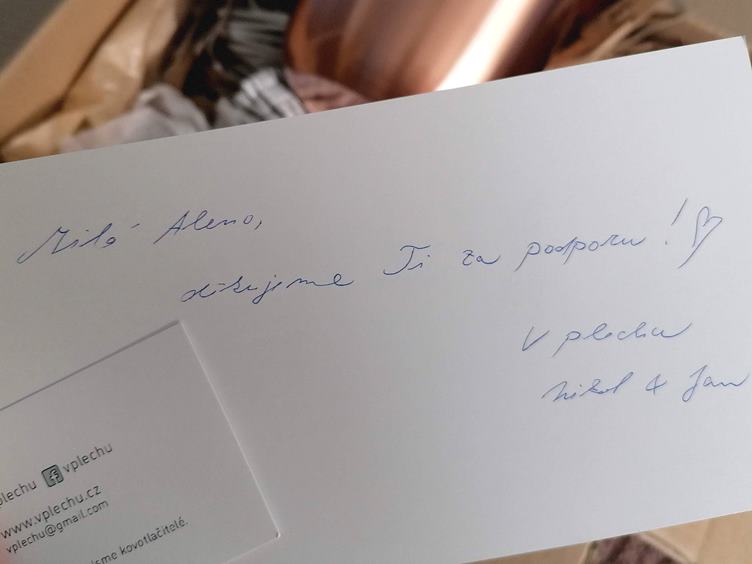 Milá Aleno,
děkujeme Ti za podporu! ♡
V plechu
Nikol & Jan
plechu vplechu
www.vplechu.cz
vplechu@gmail.com
sme kovotlačitelé.